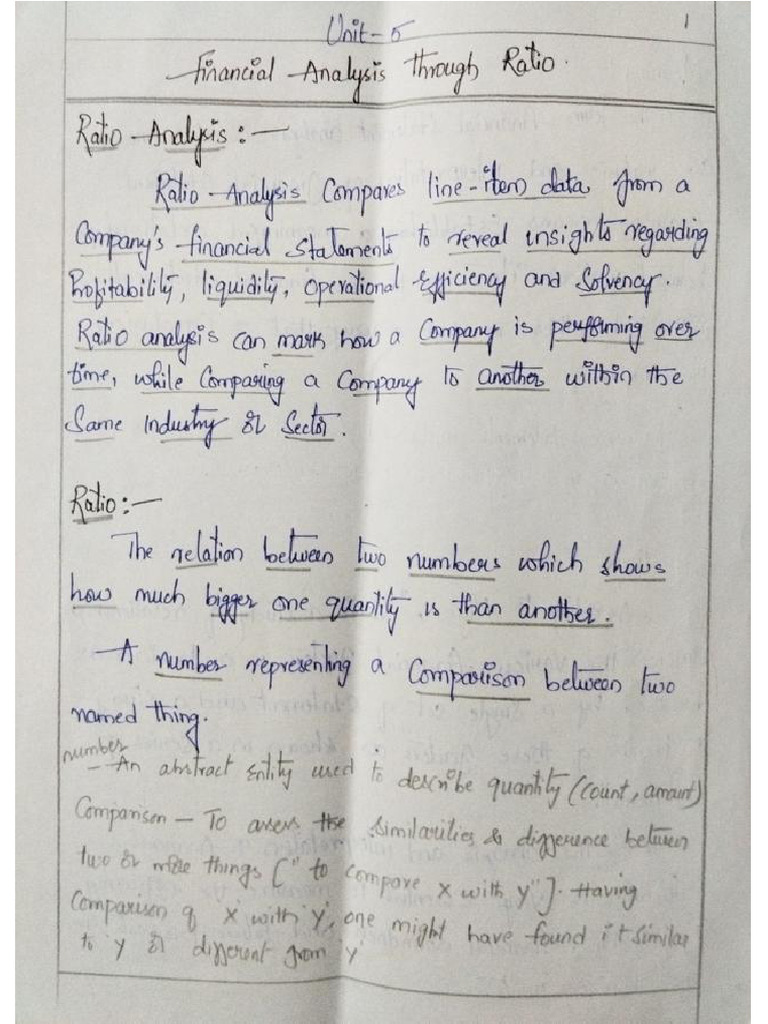 Unit - 5
1
Financial Analysis through Ratio.
Ratio Analysis :-
Ratio Analysis Compares line-item data from a
Company's financial Statements to reveal insights regarding
Profitability, liquidity, operational Efficiency and Solvency.
Ratio analysis can mark how a Company is performing over
time, while Comparing a Company to another within the
Same Industry or Sector.
Ratio :-
The relation between two numbers which shows
how much bigger one quantity is than another.
A number representing a Comparison between two
named thing.
number
- An abstract Entity used to describe quantity (count, amount)
Comparison - To asses the similarities & difference between
two or more things [" to compare x with y"]. Having
Comparison of 'x' with 'y', one might have found it similar
to y or different from 'y'